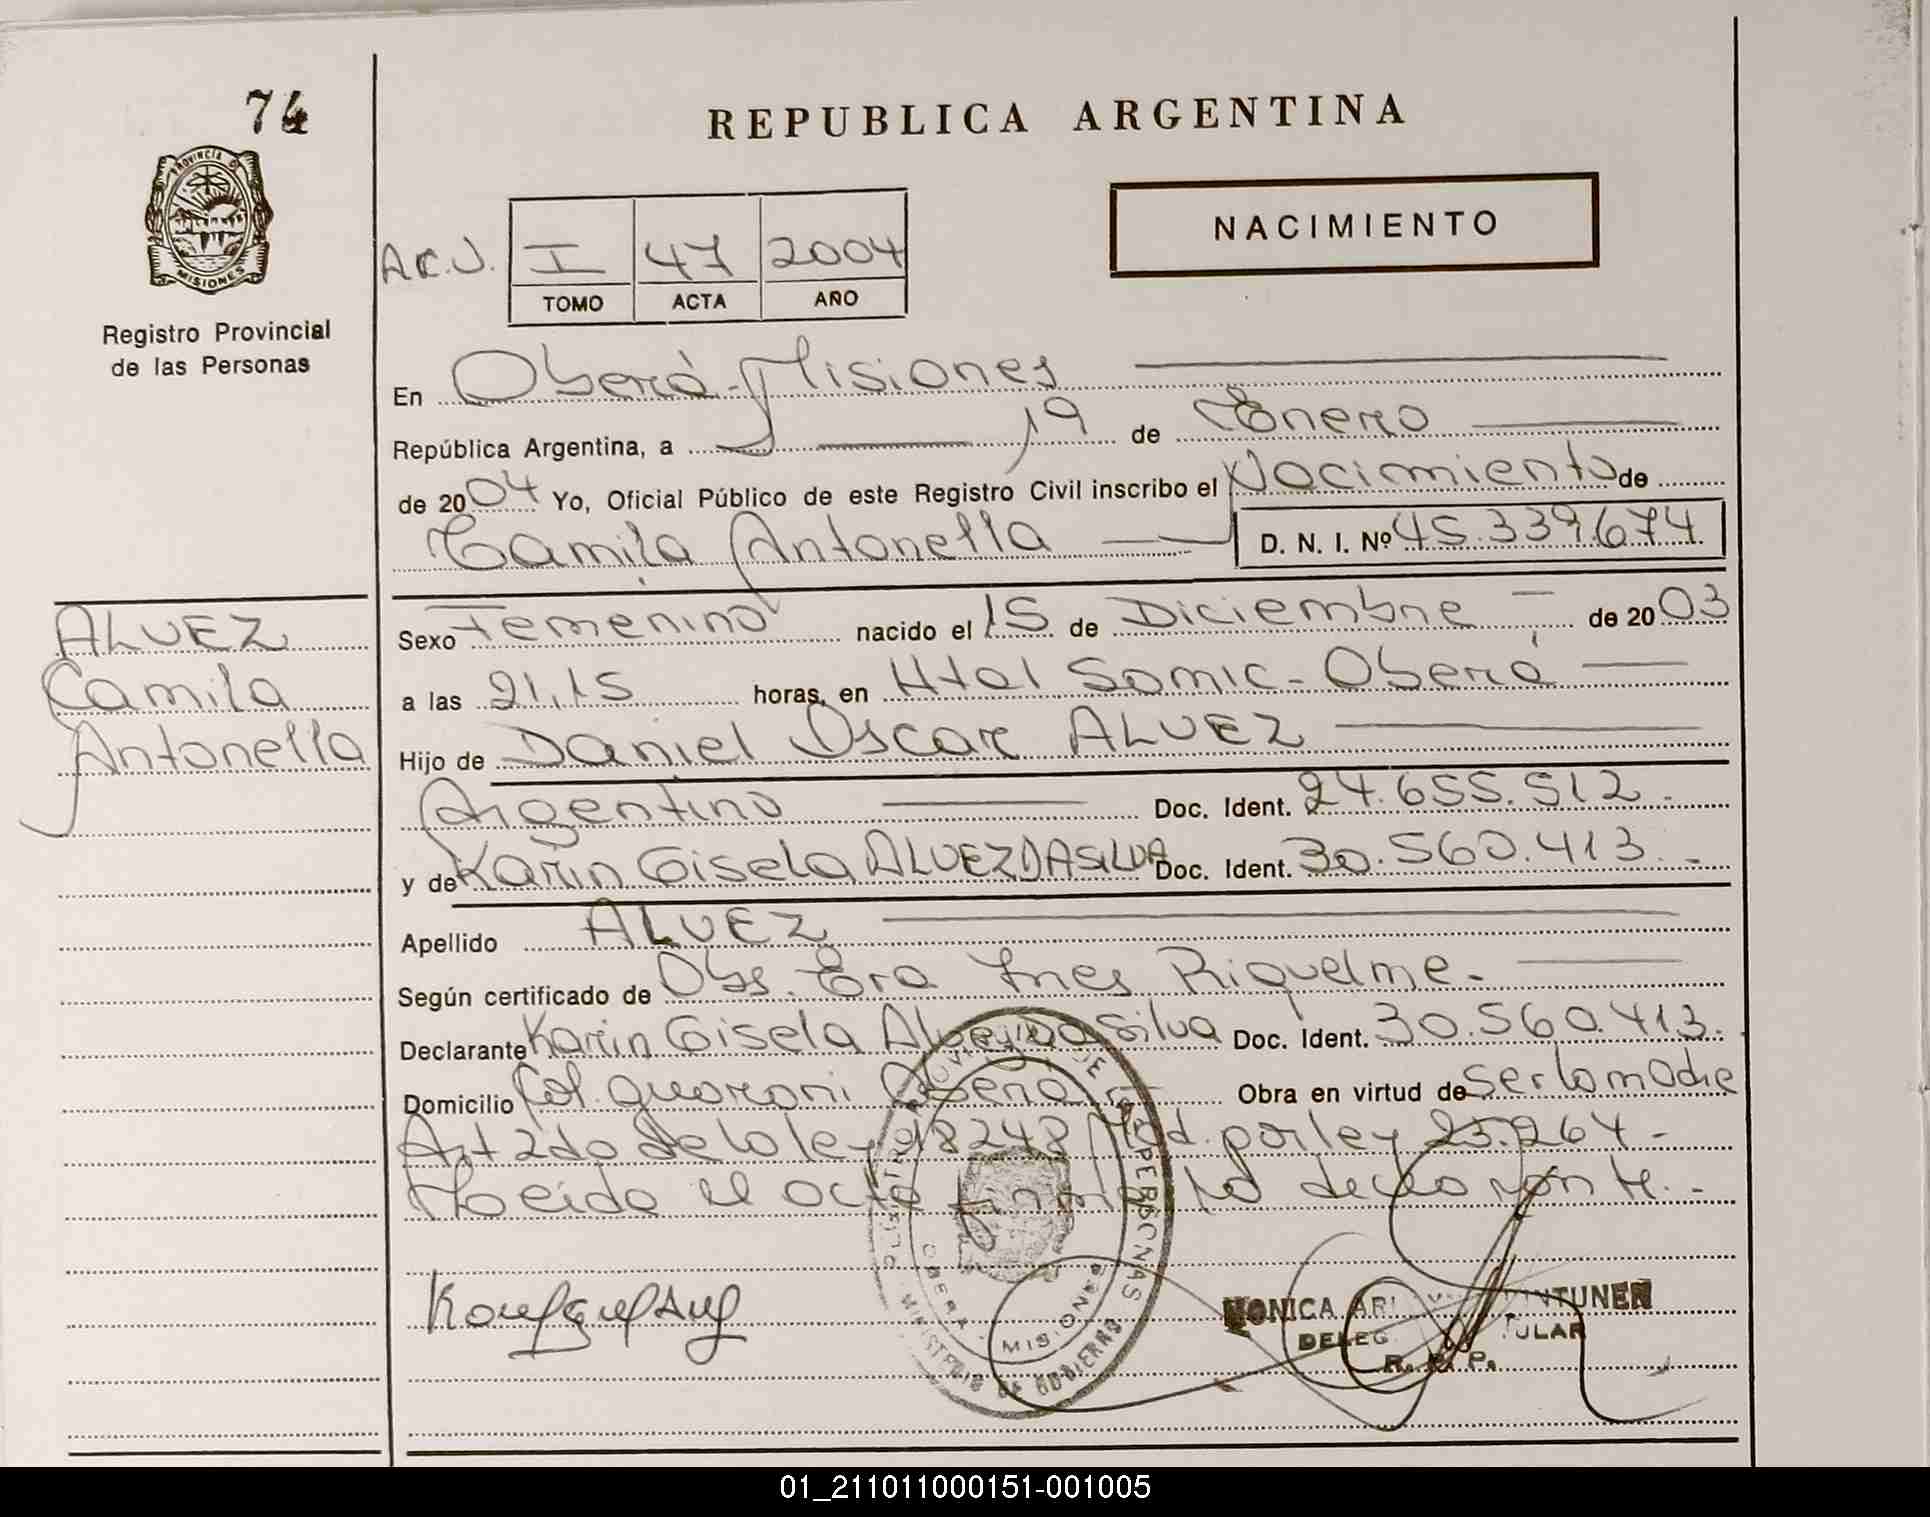 74
REPUBLICA ARGENTINA
PROVINCIA DE
MISIONES
Registro Provincial
de las Personas
NACIMIENTO
I 47 2004
TOMO ACTA AÑO
En Oberá - Misiones
República Argentina, a 19 de Enero
de 2004 Yo, Oficial Público de este Registro Civil inscribo el Nacimiento de
Camila Antonella D. N. I. Nº 45.339.674
ALVEZ
Camila
Antonella
Sexo Femenino nacido el 15 de Diciembre de 2003
a las 21,15 horas, en Htal Samic - Oberá
Hijo de Daniel Oscar ALVEZ
Argentino Doc. Ident. 24.655.512.
y de Karin Gisela ALVEZ DA SILVA Doc. Ident. 30.560.413.-
Apellido ALVEZ
Según certificado de Obs. Era Ines Riquelme.
Declarante Karin Gisela Alvez da Silva Doc. Ident. 30.560.413.
Domicilio Col. Guarani Oberá Obra en virtud de Ser la madre
Art 2do de la ley 18248 Mod. por ley 23.264.-
Leida el acta firma la declarante.-
PERSONAS
OBERA - MISIONES
MINISTERIO DE GOBIERNO
MONICA
R. P.
01_211011000151-001005